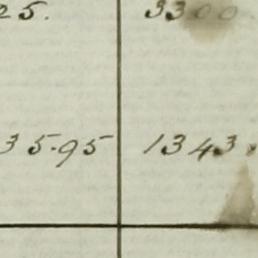 25. 3300
35.95 1343.